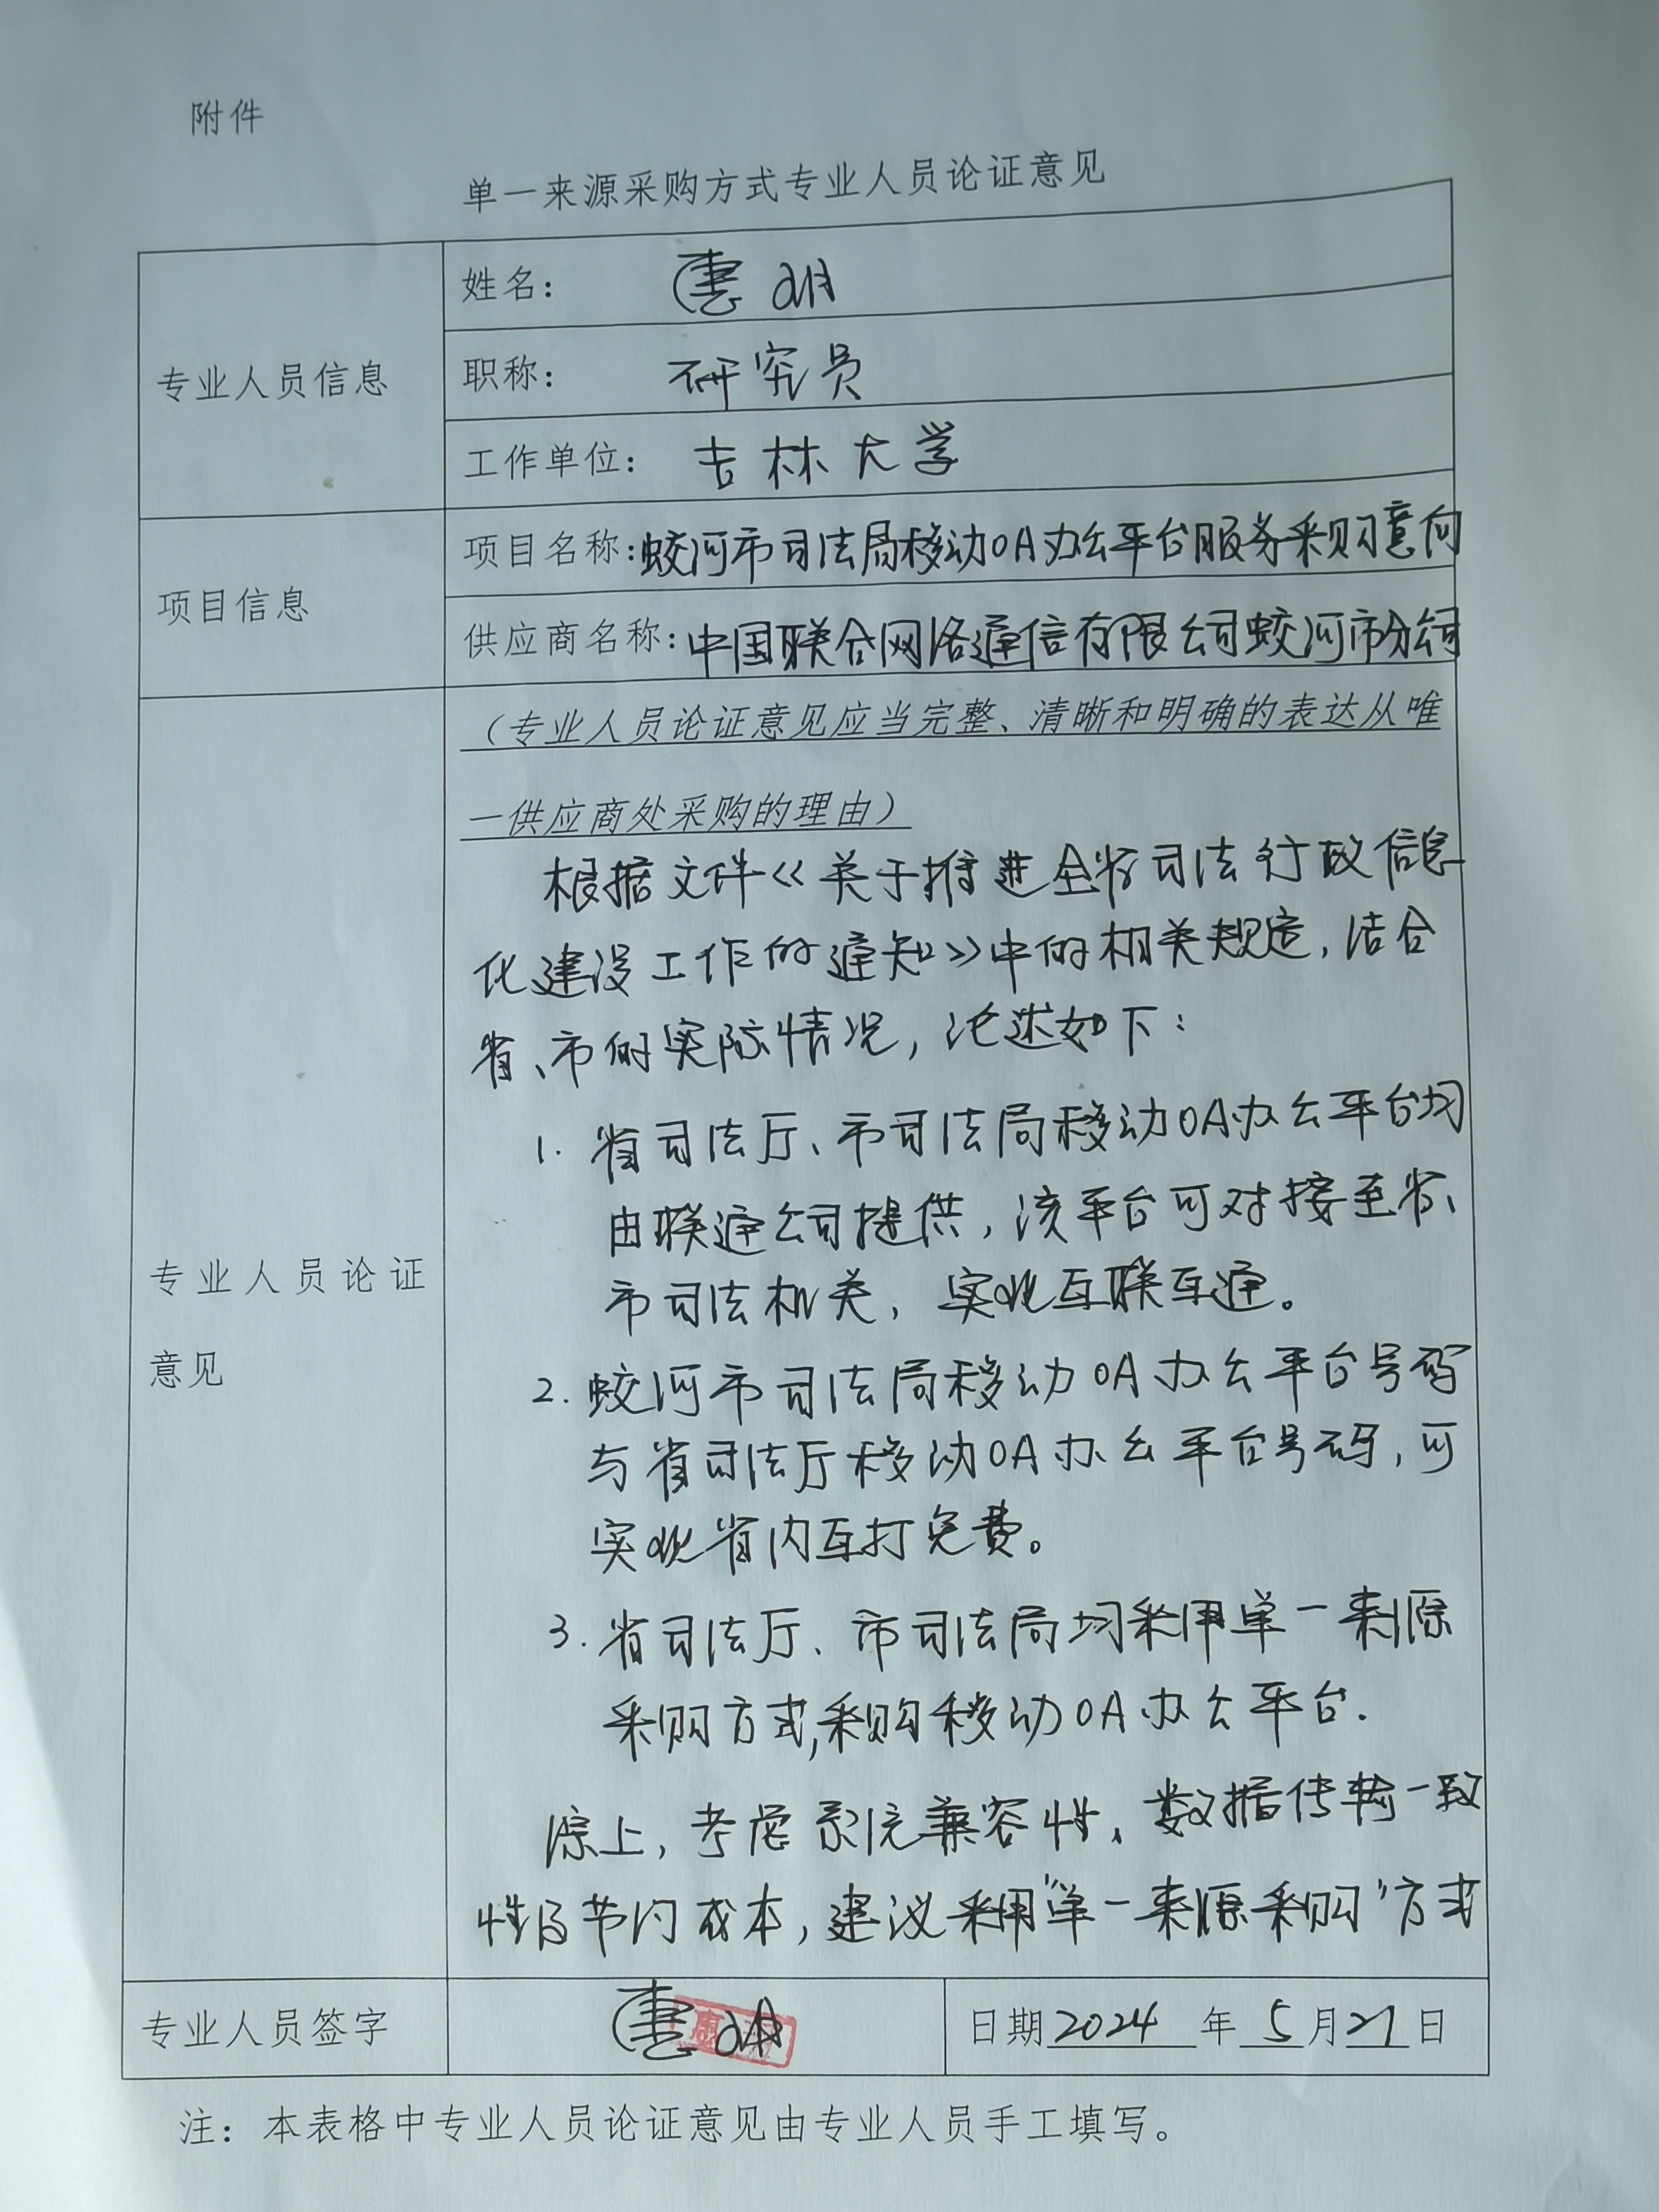 附件
单一来源采购方式专业人员论证意见
专业人员信息
姓名： 惠明
职称： 研究员
工作单位： 吉林大学
项目信息
项目名称：蛟河市司法局移动OA办公平台服务采购意向
供应商名称：中国联合网络通信有限公司蛟河市分公司
专业人员论证
意见
（专业人员论证意见应当完整、清晰和明确的表达从唯
一供应商处采购的理由）
根据文件《关于推进全省司法行政信息
化建设工作的通知》中的相关规定，结合
省、市的实际情况，论述如下：
1. 省司法厅、市司法局移动OA办公平台均
由联通公司提供，该平台可对接至省、
市司法机关，实现互联互通。
2. 蛟河市司法局移动OA办公平台号码
与省司法厅移动OA办公平台号码，可
实现省内互打免费。
3. 省司法厅、市司法局均采用单一来源
采购方式，采购移动OA办公平台.
综上，考虑系统兼容性、数据传输一致
性及节约成本，建议采用“单一来源采购”方式
专业人员签字
惠明
日期2024年5月21日
注：本表格中专业人员论证意见由专业人员手工填写。